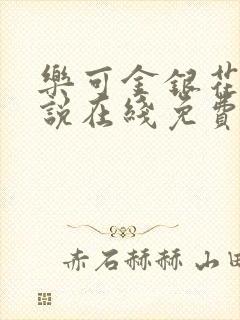 樂可金銀花
說在綫免費
赤石赫赫 山田